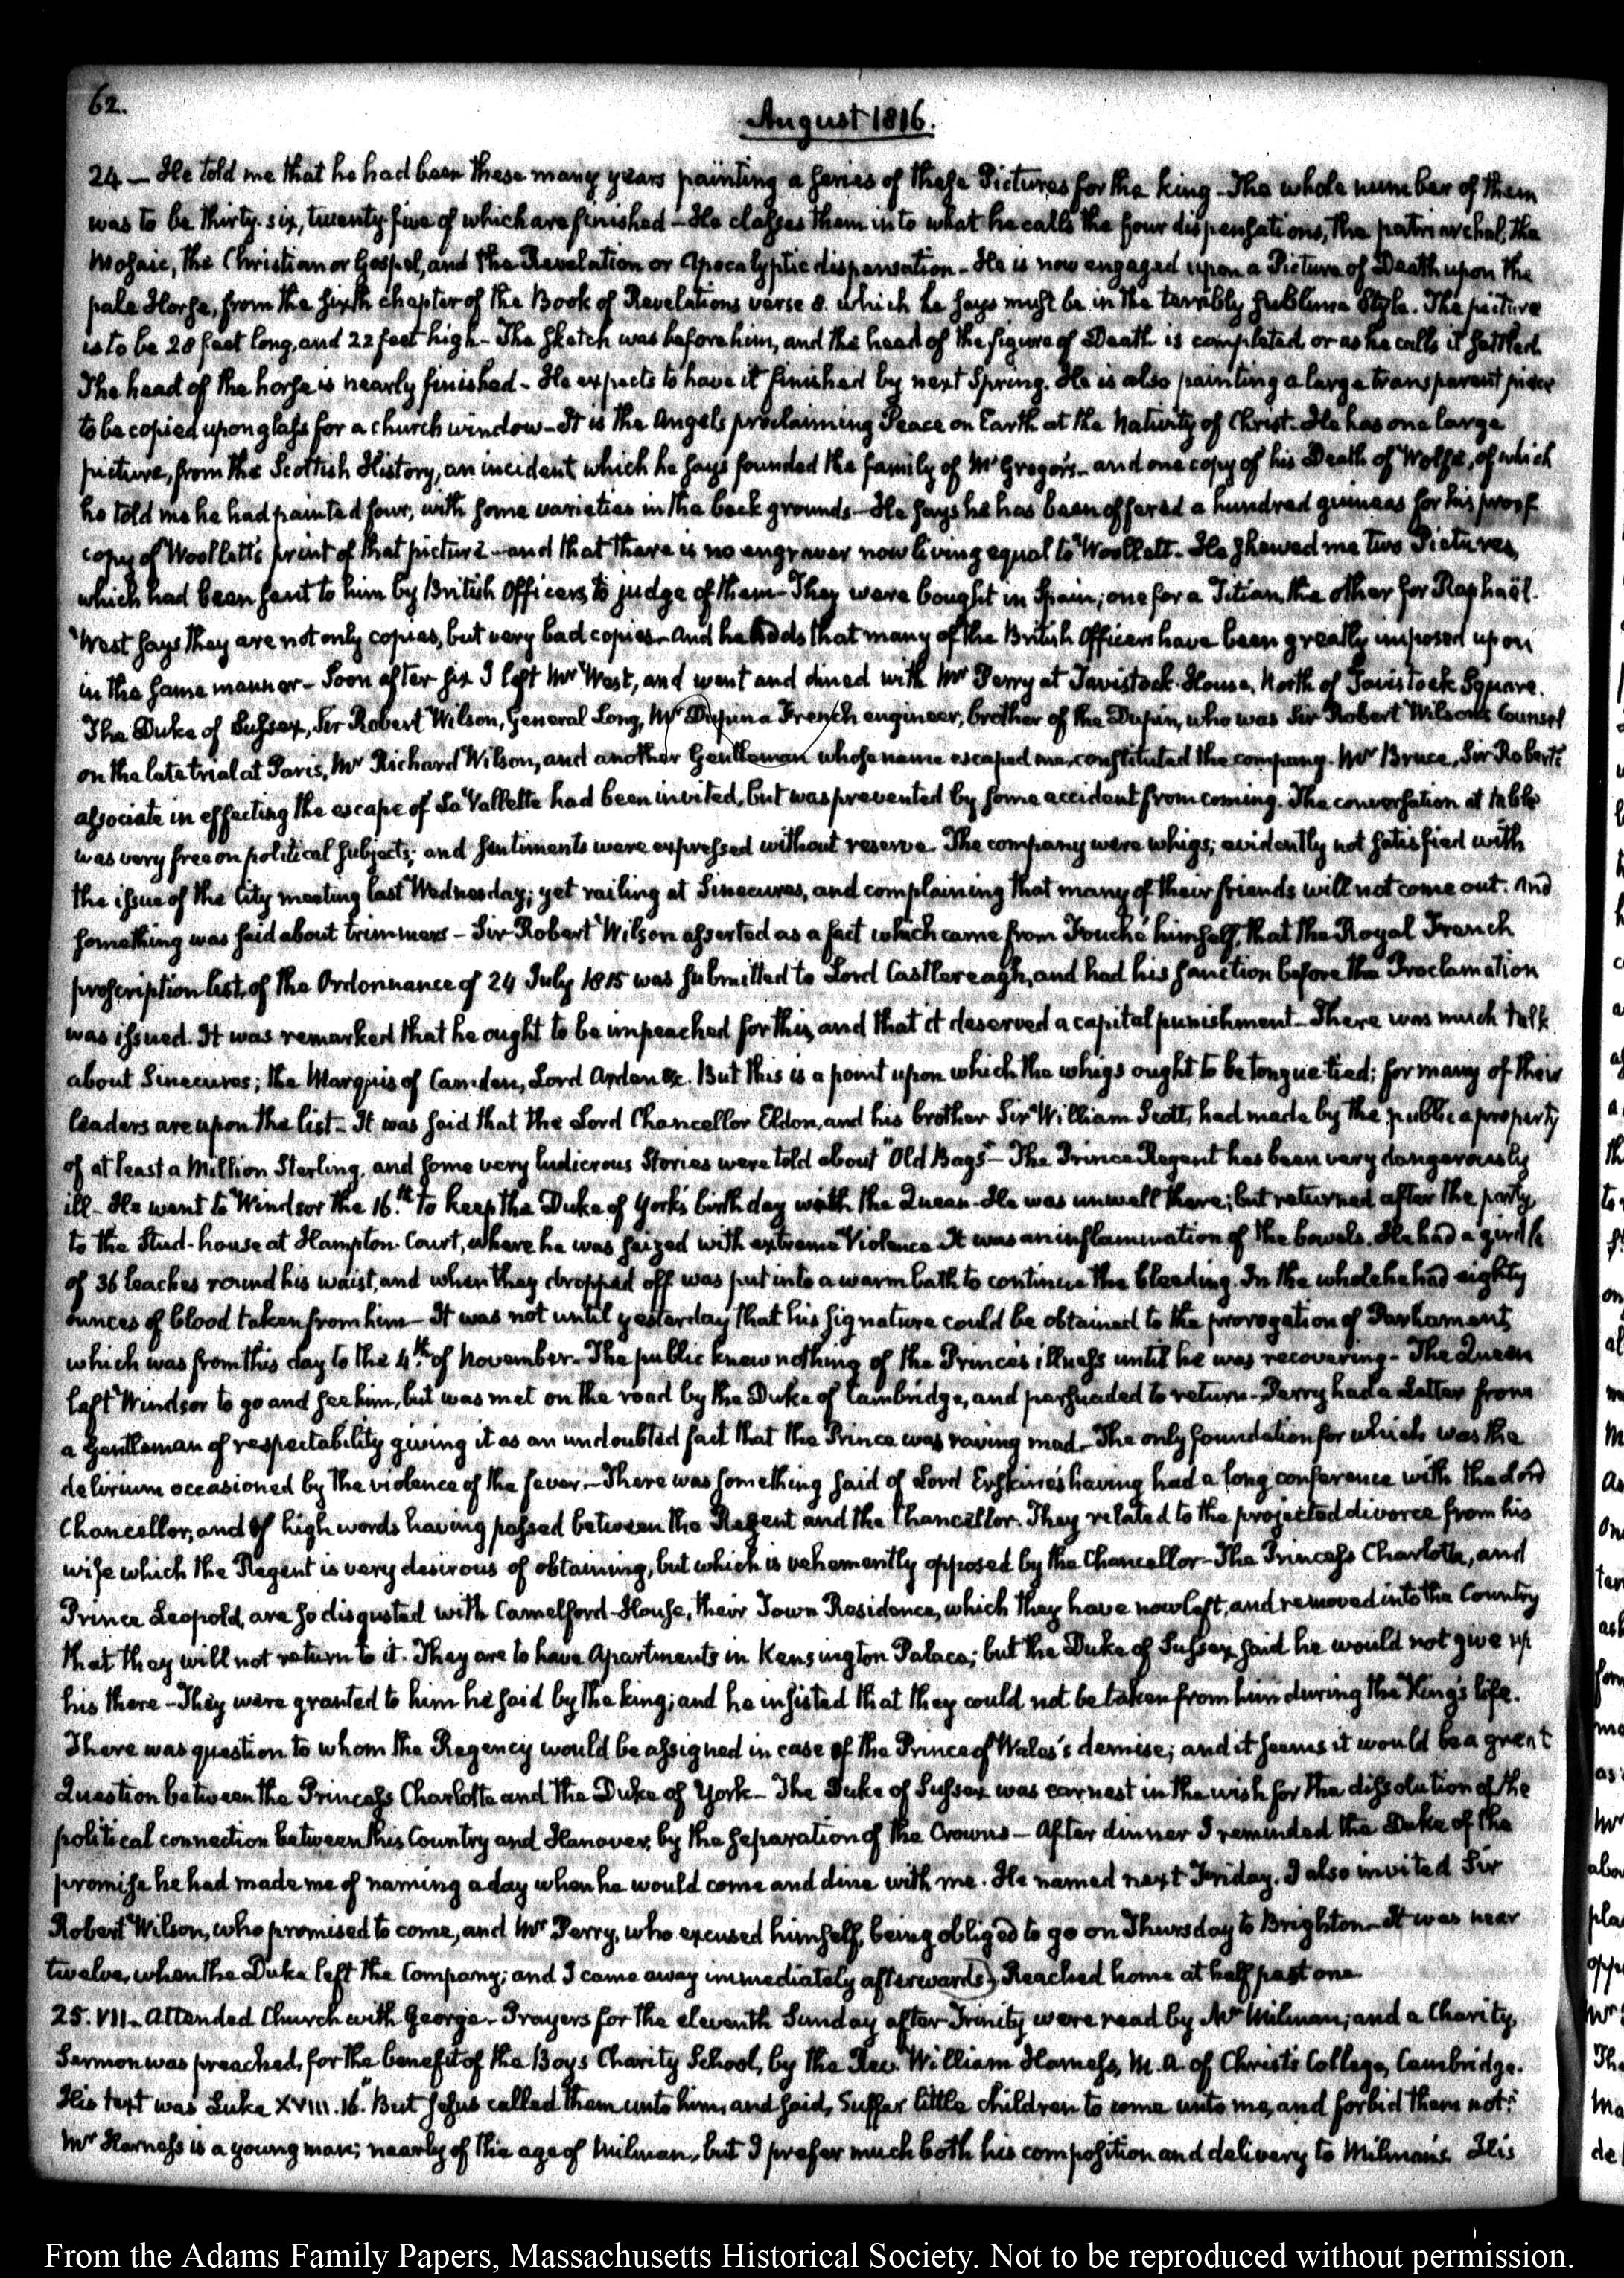 62.
August 1816.
24 — He told me that he had been these many years painting a series of these Pictures for the King - The whole number of them
was to be thirty-six, twenty-five of which are finished - He classes them into what he calls the four dispensations, the patriarchal, the
Mosaic, the Christian or Gospel, and the Revelation or Apocalyptic dispensation - He is now engaged upon a Picture of Death upon the
pale Horse, from the sixth chapter of the Book of Revelations verse 8. which he says must be in the terribly sublime Style. The picture
is to be 28 feet long, and 22 feet high - The sketch was before him, and the head of the figure of Death is completed, or as he calls it settled.
The head of the horse is nearly finished - He expects to have it finished by next Spring. He is also painting a large transparent piece
to be copied upon glass for a church window - It is the Angels proclaiming Peace on Earth at the Nativity of Christ. He has one large
picture, from the Scottish History, an incident which he says founded the family of McGregors - and one copy of his Death of Wolfe, of which
he told me he had painted four, with some varieties in the back grounds - He says he has been offered a hundred guineas for his proof
copy of Woollett's print of that picture - and that there is no engraver now living equal to Woollett - He shewed me two Pictures,
which had been sent to him by British Officers, to judge of them - They were bought in Spain; one for a Titian, the other for Raphaël.
West says they are not only copies, but very bad copies - And he adds that many of the British Officers have been greatly imposed upon
in the same manner - Soon after six I left Mr West, and went and dined with Mr Perry at Tavistock-House, North of Tavistock Square.
The Duke of Sussex, Sir Robert Wilson, General Long, Mr Dupin a French engineer, brother of the Dupin, who was Sir Robert Wilson's Counsel
on the late trial at Paris, Mr Richard Wilson, and another Gentleman whose name escaped me, constituted the company. Mr Bruce, Sir Robert's
associate in effecting the escape of La Vallette had been invited, but was prevented by some accident from coming. The conversation at table
was very free on political subjects; and sentiments were expressed without reserve. The company were whigs; evidently not satisfied with
the issue of the City meeting last Wednesday; yet railing at Sinecures, and complaining that many of their friends will not come out. And
something was said about trimmers - Sir Robert Wilson asserted as a fact which came from Fouché himself, that the Royal French
proscription list, of the Ordonnance of 24 July 1815 was submitted to Lord Castlereagh, and had his sanction before the Proclamation
was issued. It was remarked that he ought to be impeached for this, and that it deserved a capital punishment - There was much talk
about Sinecures; the Marquis of Camden, Lord Arden &c. But this is a point upon which the whigs ought to be tongue-tied; for many of their
leaders are upon the list - It was said that the Lord Chancellor Eldon, and his brother Sir William Scott, had made by the public a property
of at least a Million Sterling, and some very ludicrous Stories were told about "Old Bags" - The Prince Regent has been very dangerously
ill - He went to Windsor the 16.th to keep the Duke of York's birth day with the Queen - He was unwell there; but returned after the party
to the Stud-house at Hampton-Court, where he was seized with extreme Violence. It was an inflammation of the bowels. He had a girdle
of 36 leaches round his waist, and when they dropped off was put into a warm bath to continue the bleeding. In the whole he had eighty
ounces of blood taken from him - It was not until yesterday that his signature could be obtained to the prorogation of Parliament,
which was from this day to the 4.th of November - The public knew nothing of the Prince's illness until he was recovering - The Queen
left Windsor to go and see him, but was met on the road by the Duke of Cambridge, and persuaded to return - Perry had a Letter from
a Gentleman of respectability giving it as an undoubted fact that the Prince was raving mad - The only foundation for which was the
delirium occasioned by the violence of the fever - There was something said of Lord Erskine's having had a long conference with the Lord
Chancellor, and of high words having passed between the Regent and the Chancellor. They related to the projected divorce from his
wife which the Regent is very desirous of obtaining, but which is vehemently opposed by the Chancellor - The Princess Charlotte, and
Prince Leopold, are so disgusted with Camelford-House, their Town Residence, which they have now left, and removed into the Country
that they will not return to it. They are to have Apartments in Kensington Palace; but the Duke of Sussex said he would not give up
his there - They were granted to him he said by the King; and he insisted that they could not be taken from him during the King's life.
There was question to whom the Regency would be assigned in case of the Prince of Wales's demise; and it seems it would be a great
Question between the Princess Charlotte and the Duke of York - The Duke of Sussex was earnest in the wish for the dissolution of the
political connection between this Country and Hanover, by the separation of the Crowns - After dinner I reminded the Duke of the
promise he had made me of naming a day when he would come and dine with me. He named next Friday. I also invited Sir
Robert Wilson, who promised to come, and Mr Perry, who excused himself, being obliged to go on Thursday to Brighton - It was near
twelve, when the Duke left the Company; and I came away immediately afterwards. Reached home at half past one.
25. VII. Attended Church with George - Prayers for the eleventh Sunday after Trinity were read by Mr Milman; and a Charity
Sermon was preached, for the benefit of the Boys Charity School, by the Rev. William Harness, M.A. of Christ's College, Cambridge.
His text was Luke XVIII. 16. "But Jesus called them unto him, and said, Suffer little children to come unto me, and forbid them not:"
Mr Harness is a young man; nearly of the age of Milman, but I prefer much both his composition and delivery to Milman's. His
From the Adams Family Papers, Massachusetts Historical Society. Not to be reproduced without permission.